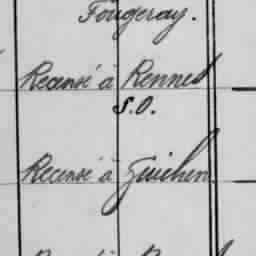 Fougeray.
Recensé à Rennes
S.O.
Recensé à Guichen